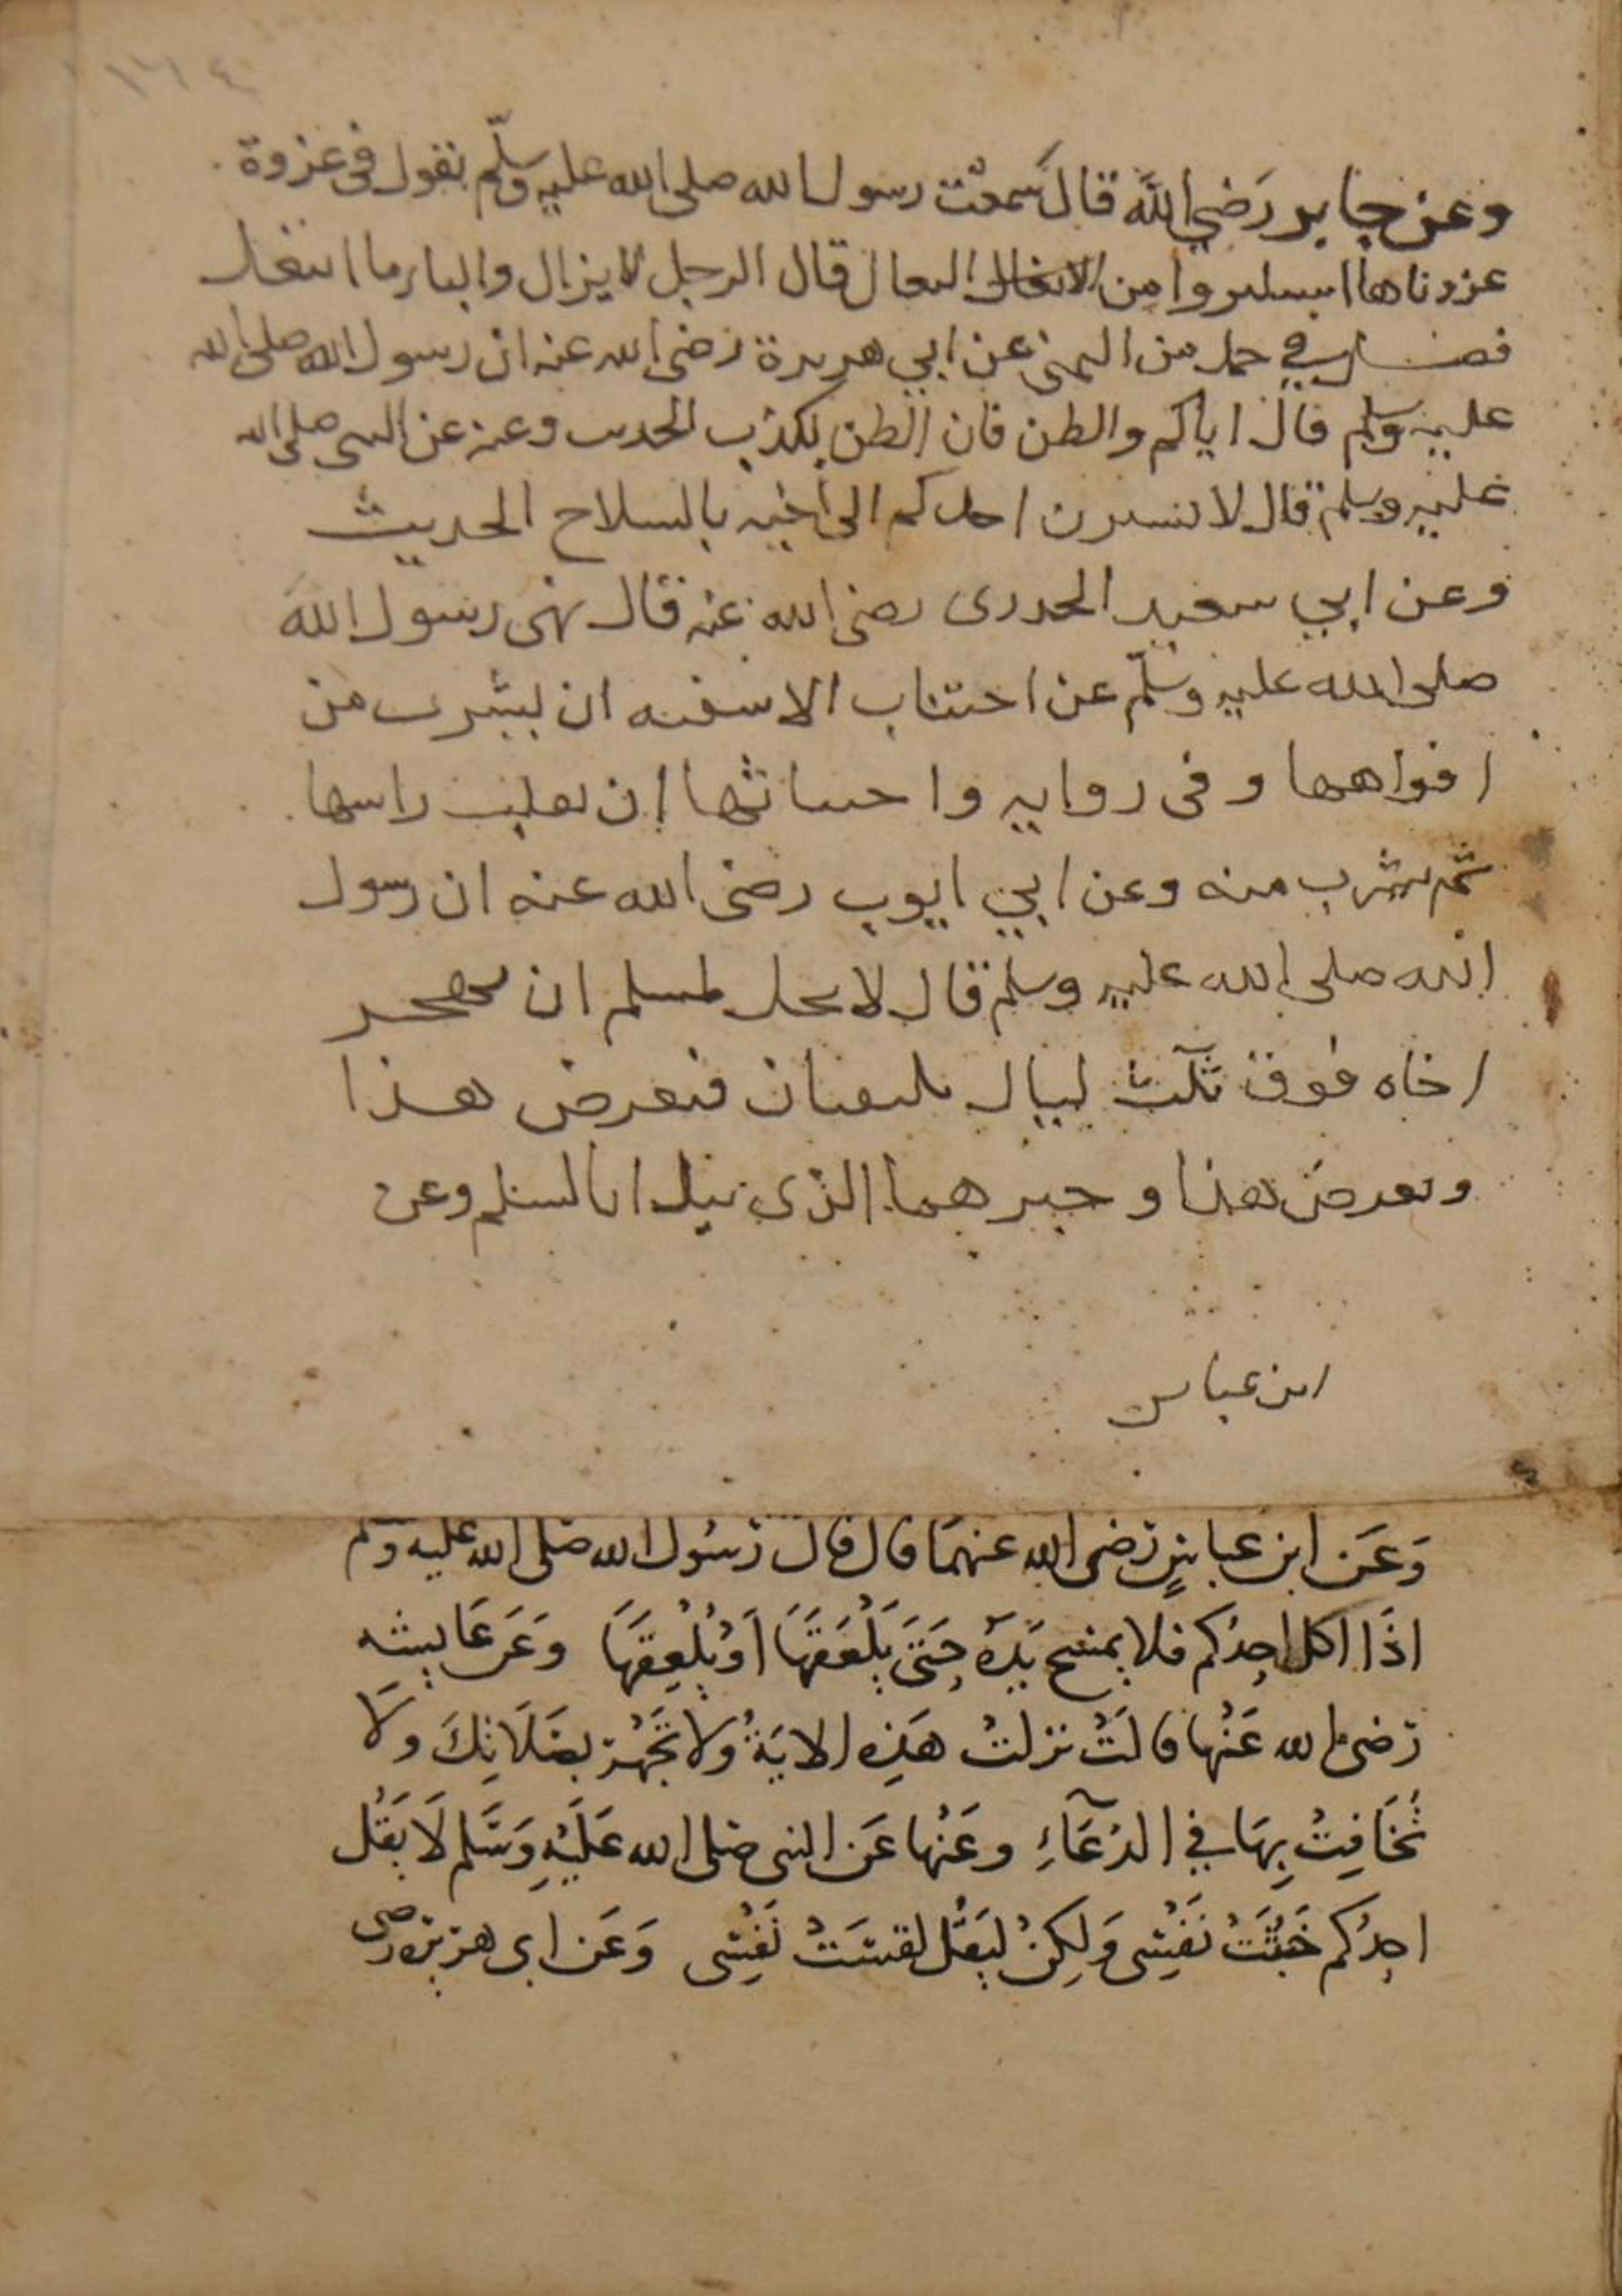 ١٦٤
وعن جابر رَضي اللهَ قالَ سَمعْت رسول الله صلى الله عليه وسلّم يقول في غزوة
غزوناها استكثروا من النعال قال الرجل لا يزال راكبا ما انتعل
فصل في حمل من اليمنى عن ابي هريرة رضى الله عنه ان رسول الله صلى الله
عليه وسلم قال اياكم والظن فان الظن يكذب الحديث وعنه عن النبي صلى الله
عليه وسلم قال لا يشيرن احدكم الى اخيه بالسلاح الحديث
وعن ابي سعيد الخدرى رضى الله عنه قال نهى رسول الله
صلى الله عليه وسلّم عن اختناث الاسقيه ان يشرب من
افواهها وفى روايه واختناثها ان تقلب راسها
ثم يشرب منه وعن ابي ايوب رضى الله عنه ان رسول
الله صلى الله عليه وسلم قال لا يحل لمسلم ان يهجر
اخاه فوق ثلث ليال يلتقيان فيعرض هذا
ويعرض هذا وخيرهما الذى يبدا بالسلم وعن
ابن عباس
وَعَن ابن عباسٍ رَضى الله عنهمَا قال قال رَسُول الله صَلى الله عَليه وسَلم
اذَا اكل احدُكم فلا يمسَح يَدَهُ حَتىَّ يَلْعَقَهَا اَوْ يُلْعِقَهَا وَعَن عَايشه
رَضى الله عَنْها قالَتْ نزلتْ هَذِه الايَةُ ولَا تَجْهَرْ بصَلَاتِكَ ولَا
تُخَافِتْ بِهَا في الدُّعَآءِ وعَنْها عَن النبى صَلى الله عَلَيْهِ وَسَلم لَا يَقُل
احدُكم خَبُثَتْ نَفْسِى وَلكِنْ ليَقُل لقسَتْ نَفْسِى وَعَن ابى هريرَه رضى